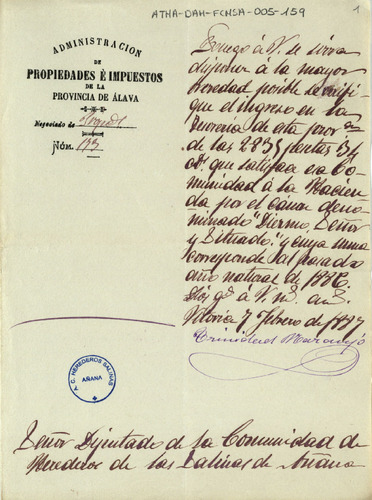 ATHA-DAH-FCNSA-005-159
1
ADMINISTRACION
DE
PROPIEDADES É IMPUESTOS
DE LA
PROVINCIA DE ÁLAVA
Negociado de
Núm. 193
Ruego á V. se sirva
disponer á la mayor
brevedad posible verifi
que el ingreso en la
Tesoreria de esta prov
de las 2835 pesetas
que satisface esa Co
munidad á la Hacien
da por el canon deno
minado "Diezmo, Señor
y Situado" y cuya suma
corresponde al pasado
año natural de 1886.
Dios gũe á V. m.s as.
Vitoria 7 Febrero de 1887
Trinidad
C. HEREDEROS SALINAS
AÑANA
Señor Diputado de la Comunidad de
Herederos de las Salinas de Añana